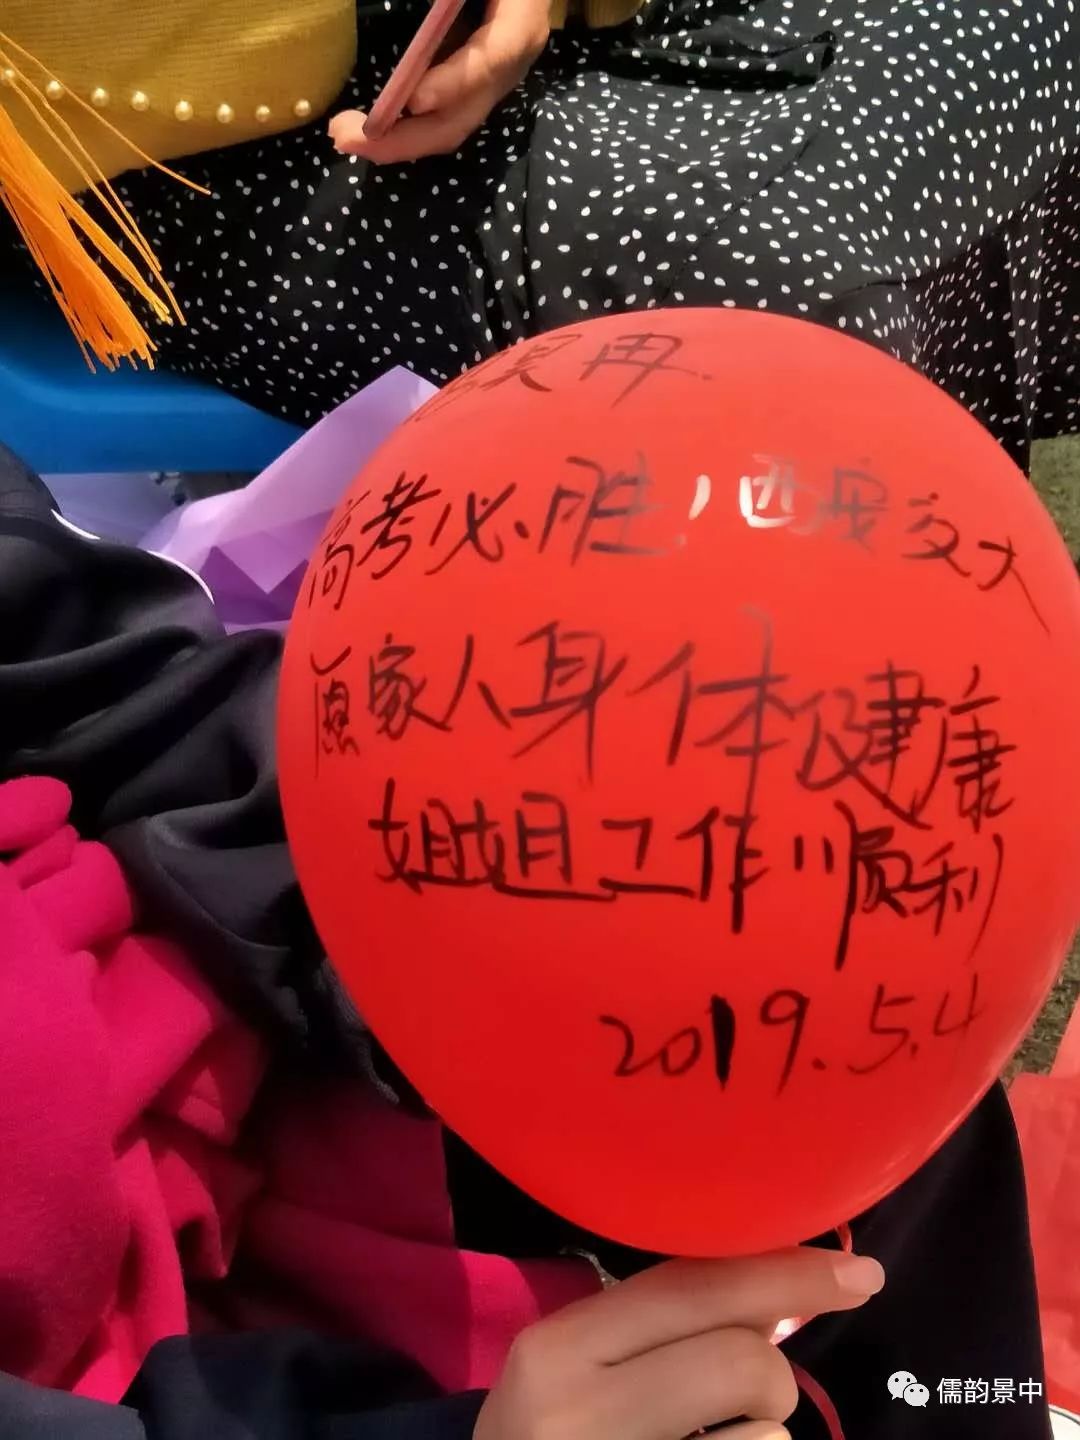 昊冉
高考必胜！西安交大
愿家人身体健康
姐姐工作顺利
2019.5.4
儒韵景中